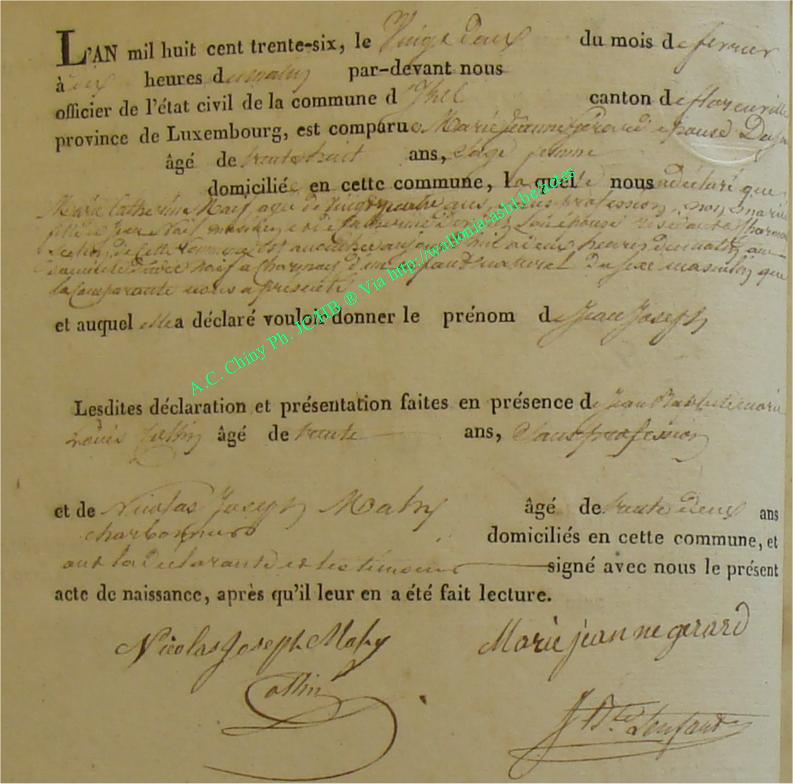 L'AN mil huit cent trente-six, le Vingt deux du mois de fevrier
à dix heures du matin par-devant nous
officier de l'état civil de la commune d'Izel canton de florenville
province de Luxembourg, est comparue Marie Jeanne Gérard epouse
âgé de trente huit ans, sage femme
domiciliée en cette commune, laquelle nous a declaré que
Marie Catherine Naif agée de Vingt quatre ans, sans profession, non mariée
fille de Naif et de Catherine son épouse residante
section de cette commune est accouchée heures du matin
d'un enfant naturel du sexe masculin que
la Comparante nous a presenté
et auquel elle a déclaré vouloir donner le prénom de Jean Joseph
Lesdites déclaration et présentation faites en présence de Jean Baptiste marie
Louis Collin âgé de trente ans, Sans profession
et de Nicolas Joseph Mahy âgé de trente deux ans
charbonnier domiciliés en cette commune, et
ont la declarante et les témoins signé avec nous le présent
acte de naissance, après qu'il leur en a été fait lecture.
Nicolas Joseph Mahy Marie jeanne gerard
Collin
J Bte
A.C. Chiny Ph. JC HB ® Via http://wallonia-asbl.be/ader